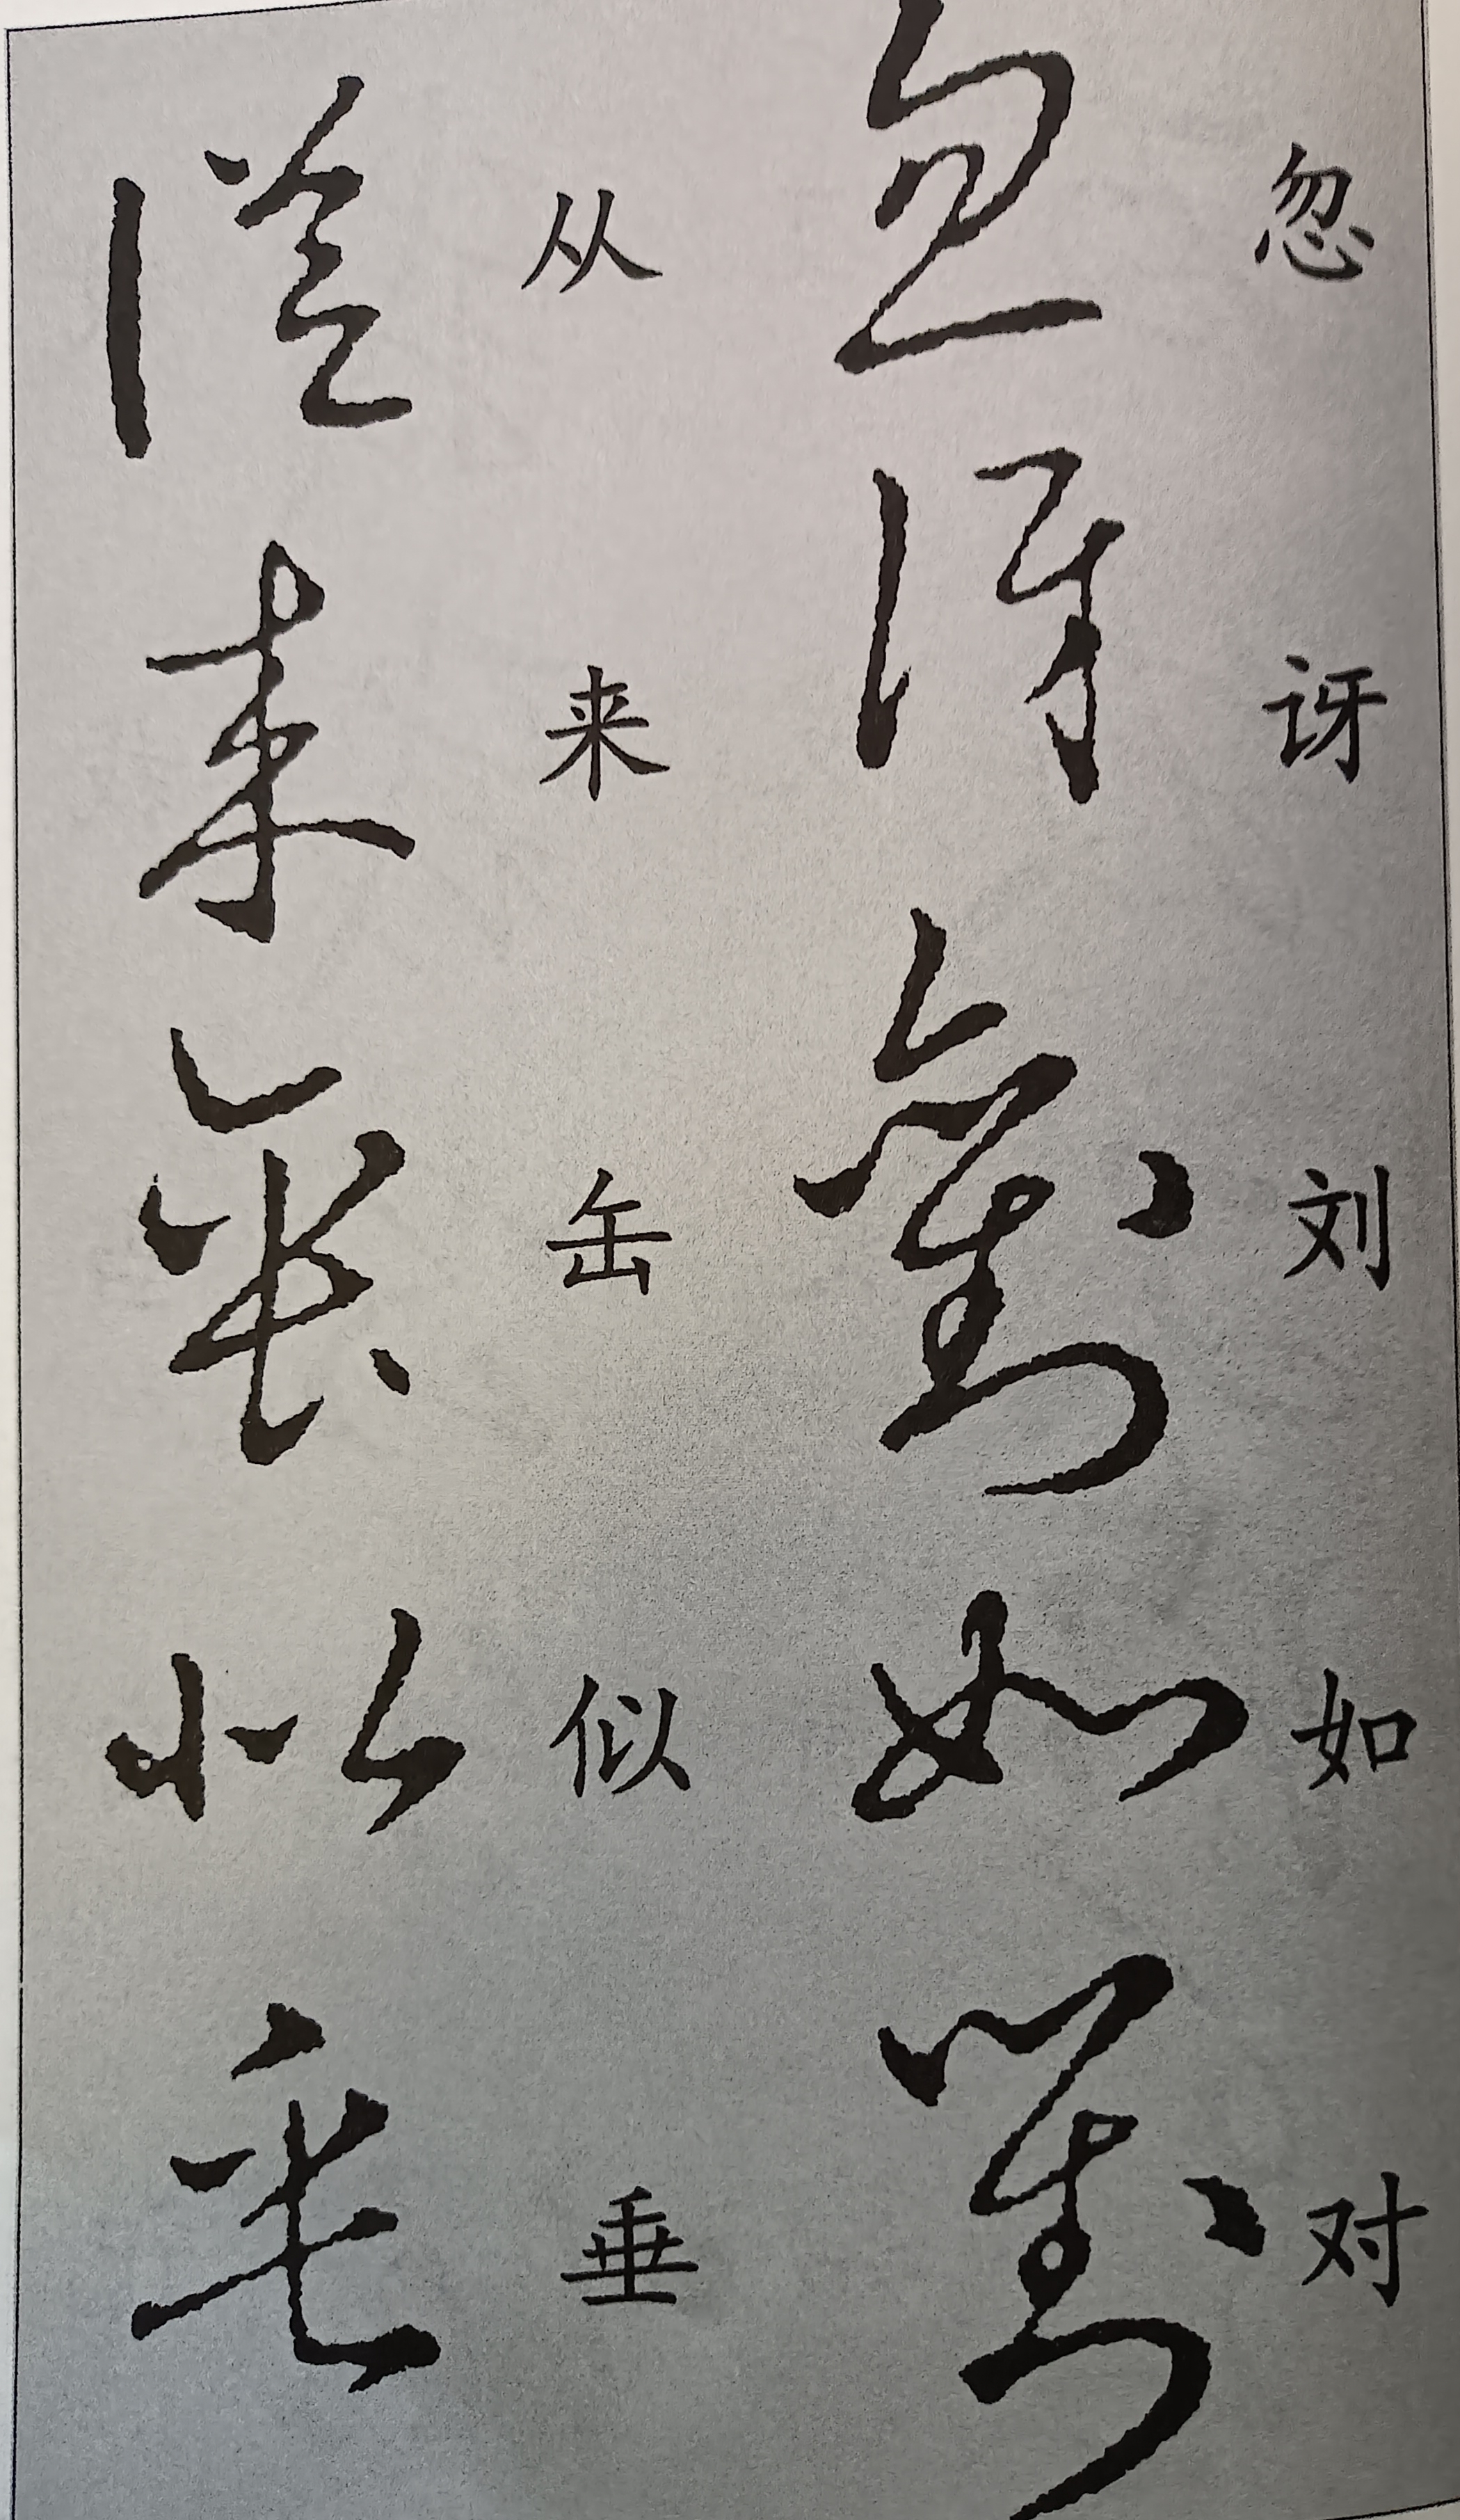 忽讶刘如对
从来缶似垂